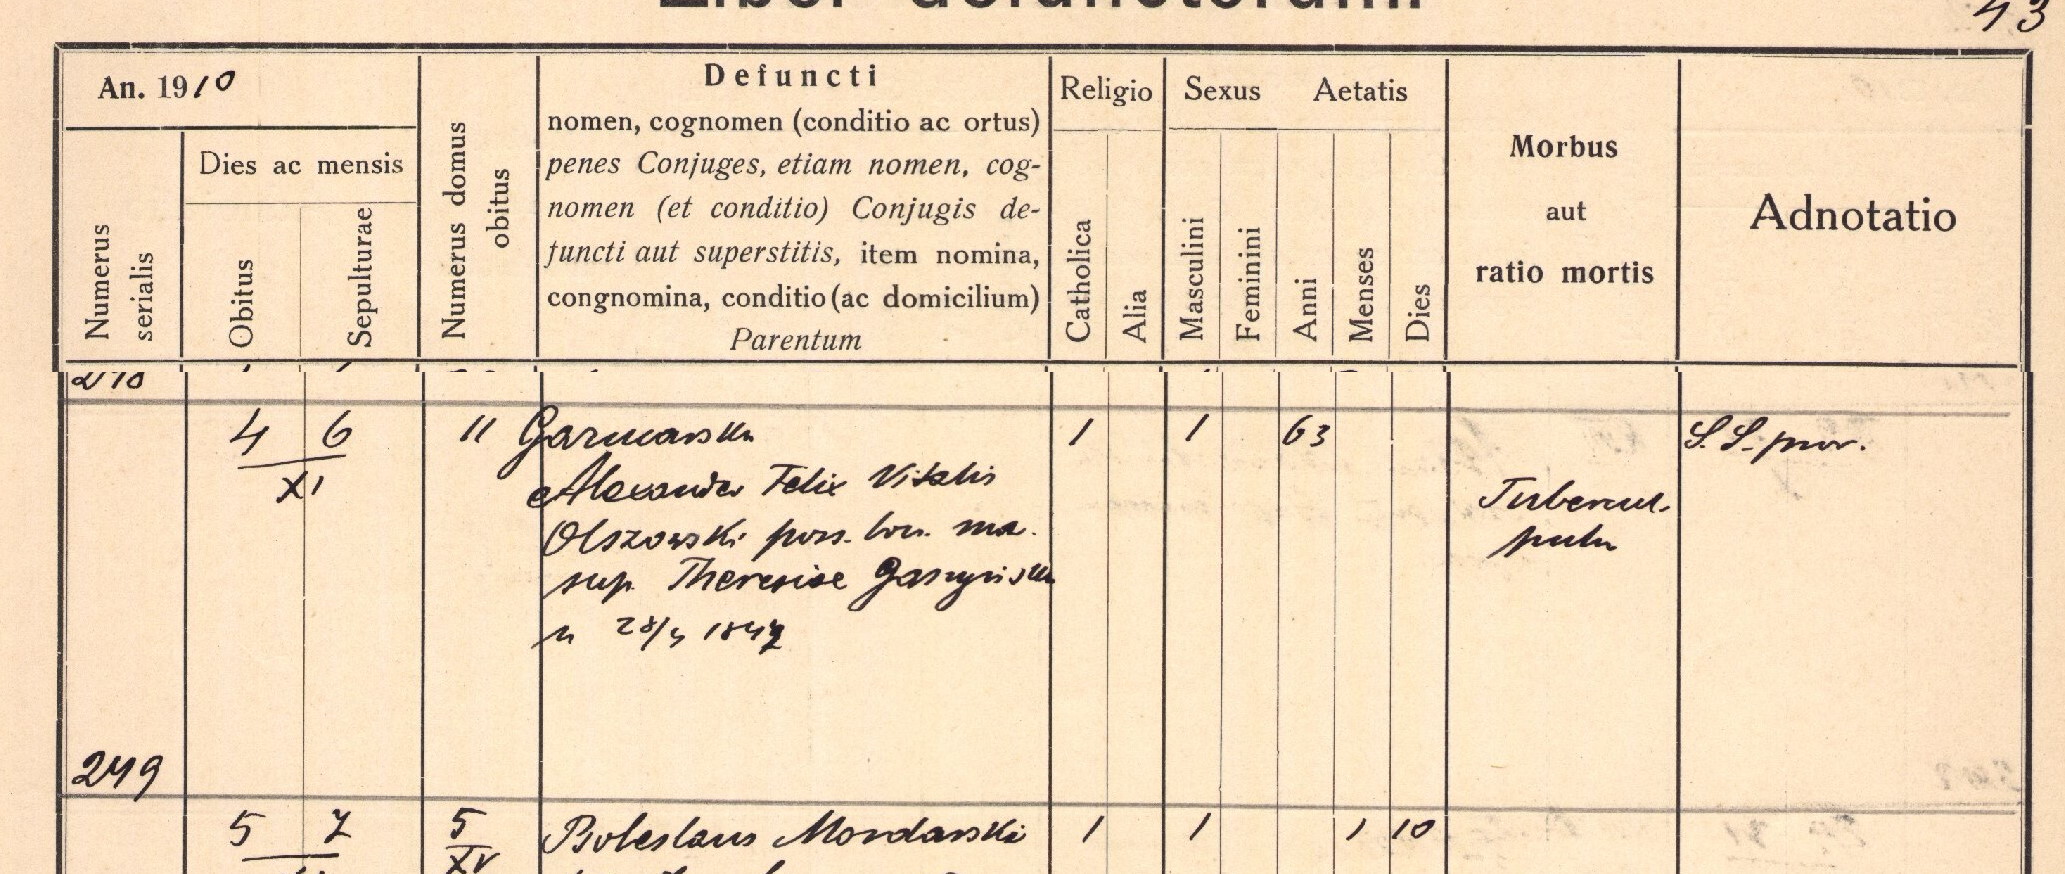 Liber defunctorum.
43
An. 1910
Numerus serialis
Dies ac mensis
Obitus
Sepulturae
Numerus domus obitus
Defuncti
nomen, cognomen (conditio ac ortus)
penes Conjuges, etiam nomen, cog-
nomen (et conditio) Conjugis de-
functi aut superstitis, item nomina,
congnomina, conditio (ac domicilium)
Parentum
Religio
Catholica
Alia
Sexus
Masculini
Feminini
Aetatis
Anni
Menses
Dies
Morbus
aut
ratio mortis
Adnotatio
4 6 11 Garncarska 1 1 63 S. S. prov.
XI
Alexander Felix Vitalis
Olszowski poss. bon. ma.
sup. Theresiae
n 28/4 1847
Tubercul.
pulm
249
5 7 5 Boleslaus Mordarski 1 1 1 10
XV